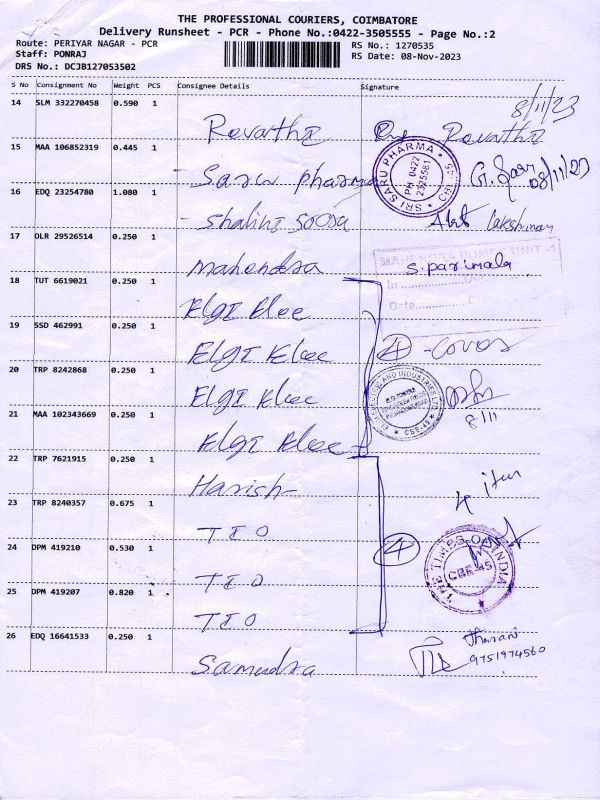 THE PROFESSIONAL COURIERS, COIMBATORE
Delivery Runsheet - PCR - Phone No.:0422-3505555 - Page No.:2
Route: PERIYAR NAGAR - PCR
RS No.: 1270535
Staff: PONRAJ
RS Date: 08-Nov-2023
DRS No.: DCJB127053502
S No Consignment No Weight PCS Consignee Details Signature
8/11/23
14 SLM 332270458 0.590 1
Revathi Revathi
15 MAA 106852319 0.445 1
Saru pharma
SRI SARU PHARMA
PH 0422
2325581
08/11/23
16 EDQ 23254780 1.080 1
Shalini Sooda Lakshman
17 OLR 29526514 0.250 1
Mahendra S. parimala
18 TUT 6619021 0.250 1
Elgi Elec
19 SSD 462991 0.250 1
Elgi Elec 4 - Covers
20 TRP 8242868 0.250 1
Elgi Elec
8/11
21 MAA 102343669 0.250 1
Elgi Elec
22 TRP 7621915 0.250 1
Harish
23 TRP 8240357 0.675 1
TIO 4
24 DPM 419210 0.530 1
TIO
THE TIMES OF INDIA
CBE-45
25 DPM 419207 0.820 1
TIO
26 EDQ 16641533 0.250 1
9751974560
Samudra